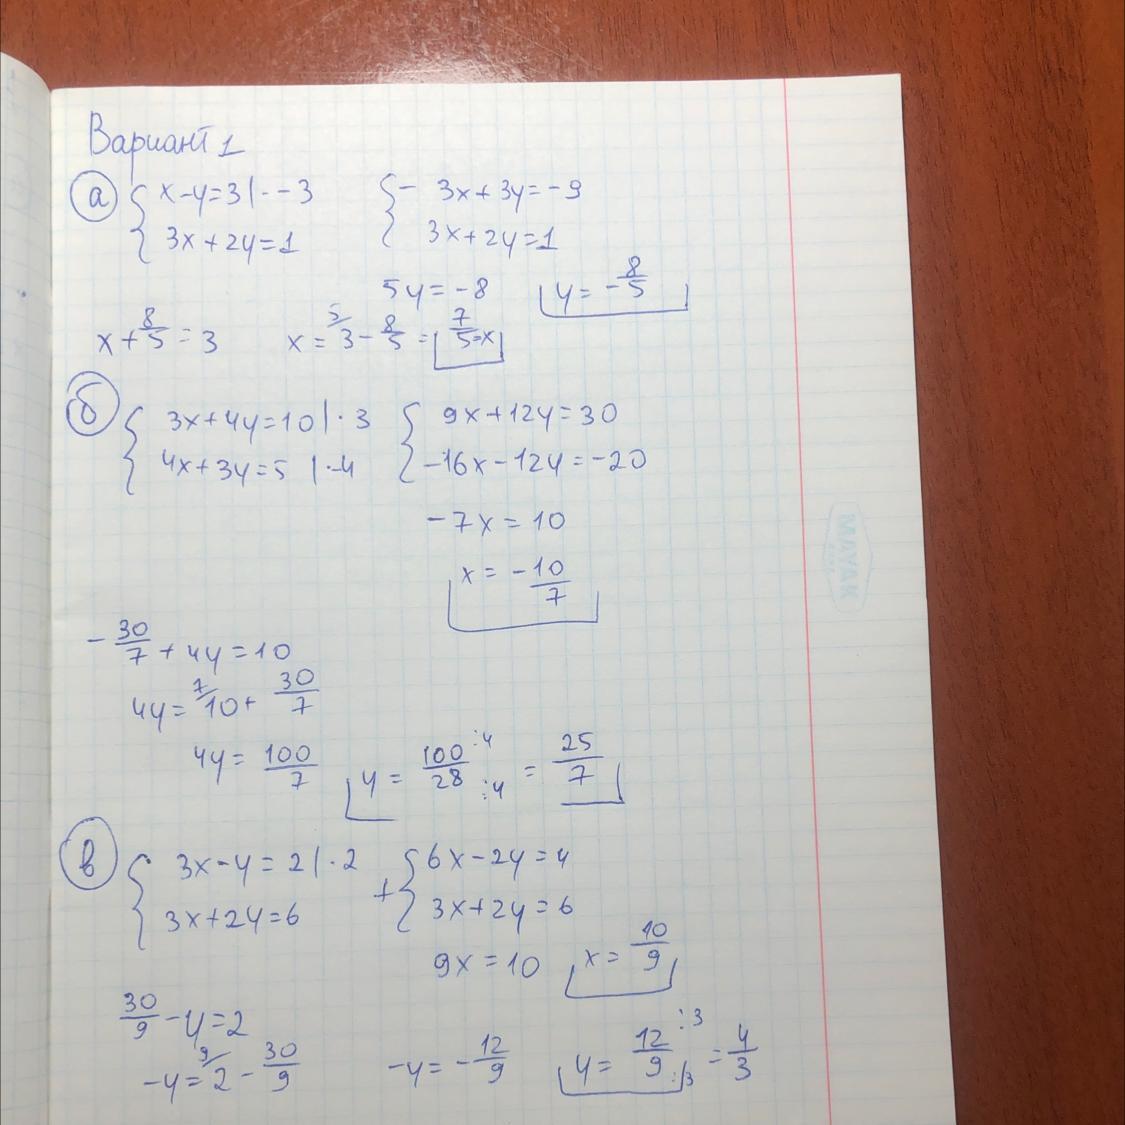 Вариант 1
а) { x-y=3 | · -3    { - 3x+3y=-9
3x+2y=1    3x+2y=1
5y=-8    y=-8/5
x+8/5=3    x=3-8/5=7/5=x
б) { 3x+4y=10 | · 3    { 9x+12y=30
4x+3y=5 | · -4    -16x-12y=-20
-7x=10
x=-10/7
-30/7+4y=10
4y=10+30/7
4y=100/7    y=100/28 :4 :4 =25/7
в) { 3x-y=2 | · 2    + { 6x-2y=4
3x+2y=6    3x+2y=6
9x=10    x=10/9
30/9-y=2
-y=2-30/9    -y=-12/9    y=12/9 :3 :3 =4/3
MAYAK